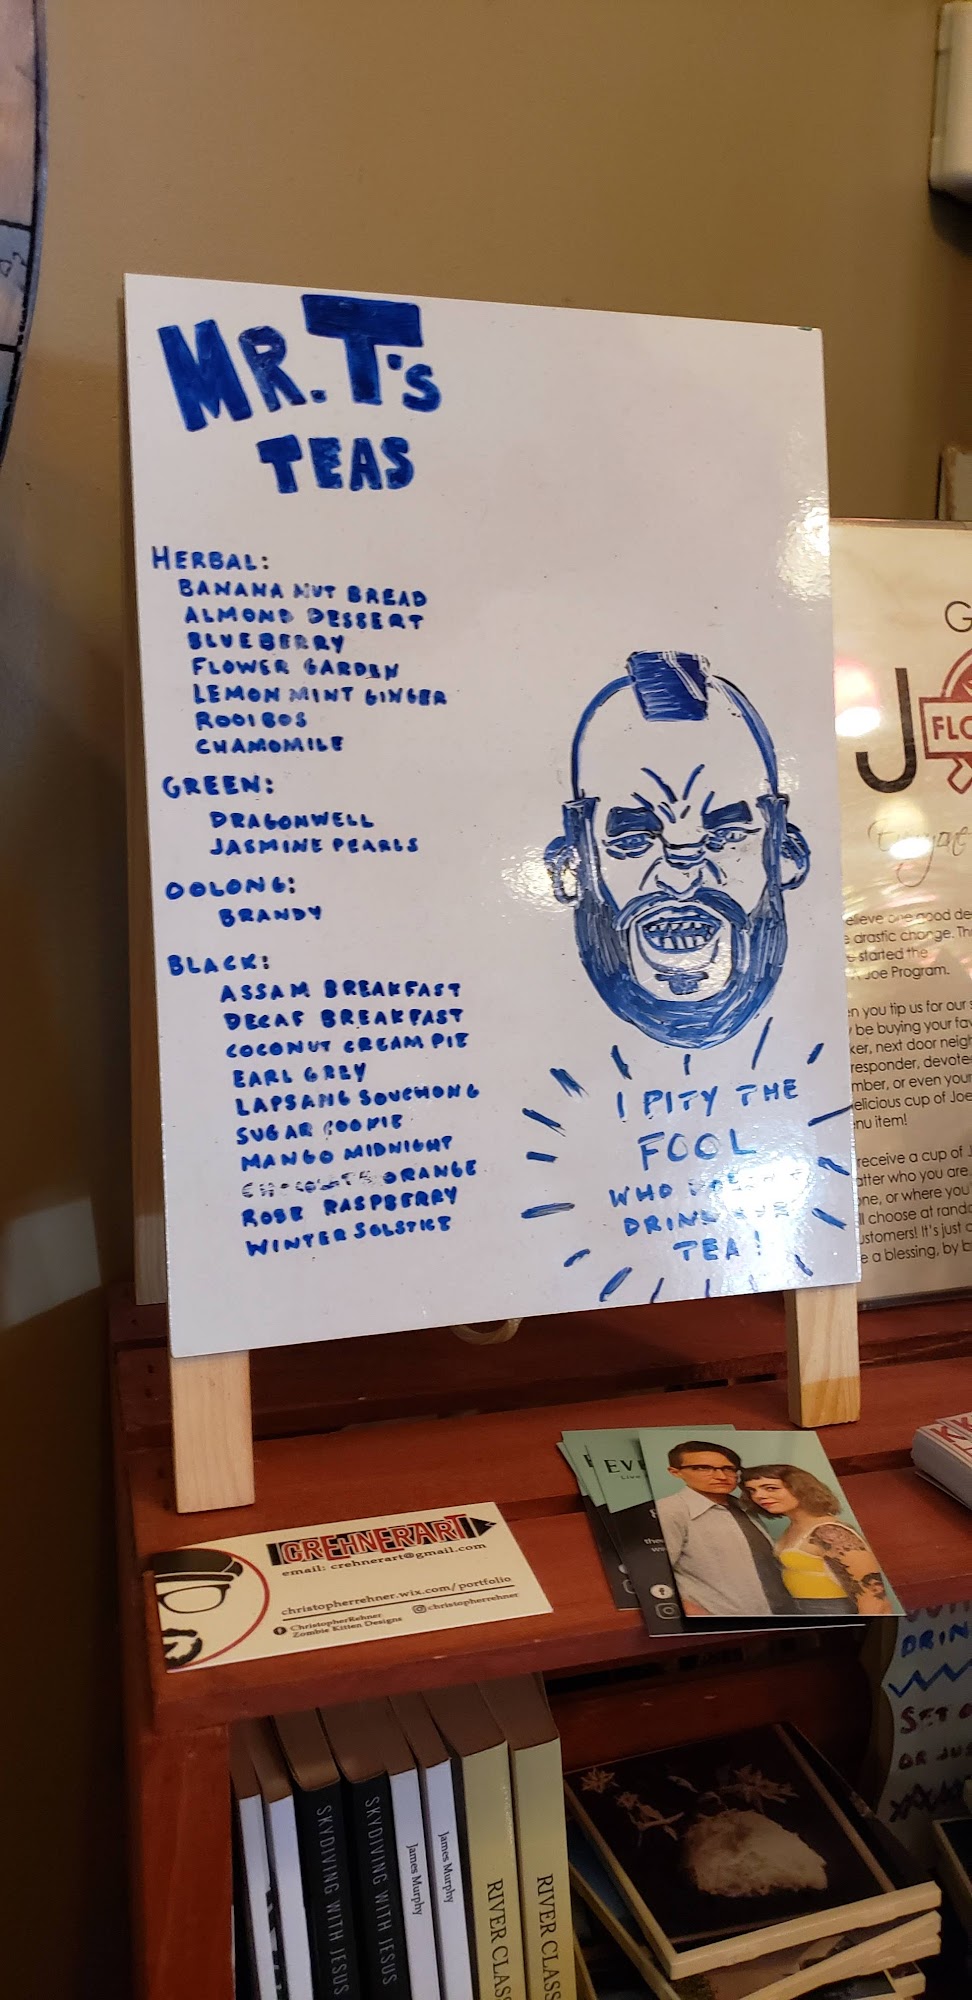 MR. T's
TEAS
HERBAL:
BANANA NUT BREAD
ALMOND DESSERT
BLUEBERRY
FLOWER GARDEN
LEMON MINT GINGER
ROOIBOS
CHAMOMILE
GREEN:
DRAGONWELL
JASMINE PEARLS
OOLONG:
BRANDY
BLACK:
ASSAM BREAKFAST
DECAF BREAKFAST
COCONUT CREAM PIE
EARL GREY
LAPSANG SOUCHONG
SUGAR COOKIE
MANGO MIDNIGHT
CHOCOLATE ORANGE
ROSE RASPBERRY
WINTER SOLSTICE
I PITY THE
FOOL
WHO
DRINK
TEA!
J
FLO
Everyone
one good
drastic change.
started the
Joe Program.
you tip us for our
be buying your
next door
responder,
or even your
cup of Joe
item!
receive a cup of
who you are
or where you
choose at
It's just
a blessing, by
CREHNERART
email: crehnerart@gmail.com
christopherrehner.wix.com/portfolio
ChristopherRehner
Zombie Kitten Designs
@christopherrehner
SKYDIVING WITH JESUS
SKYDIVING WITH JESUS
James Murphy
James Murphy
RIVER CLASS
RIVER CLASS
DRIN
SET
OR